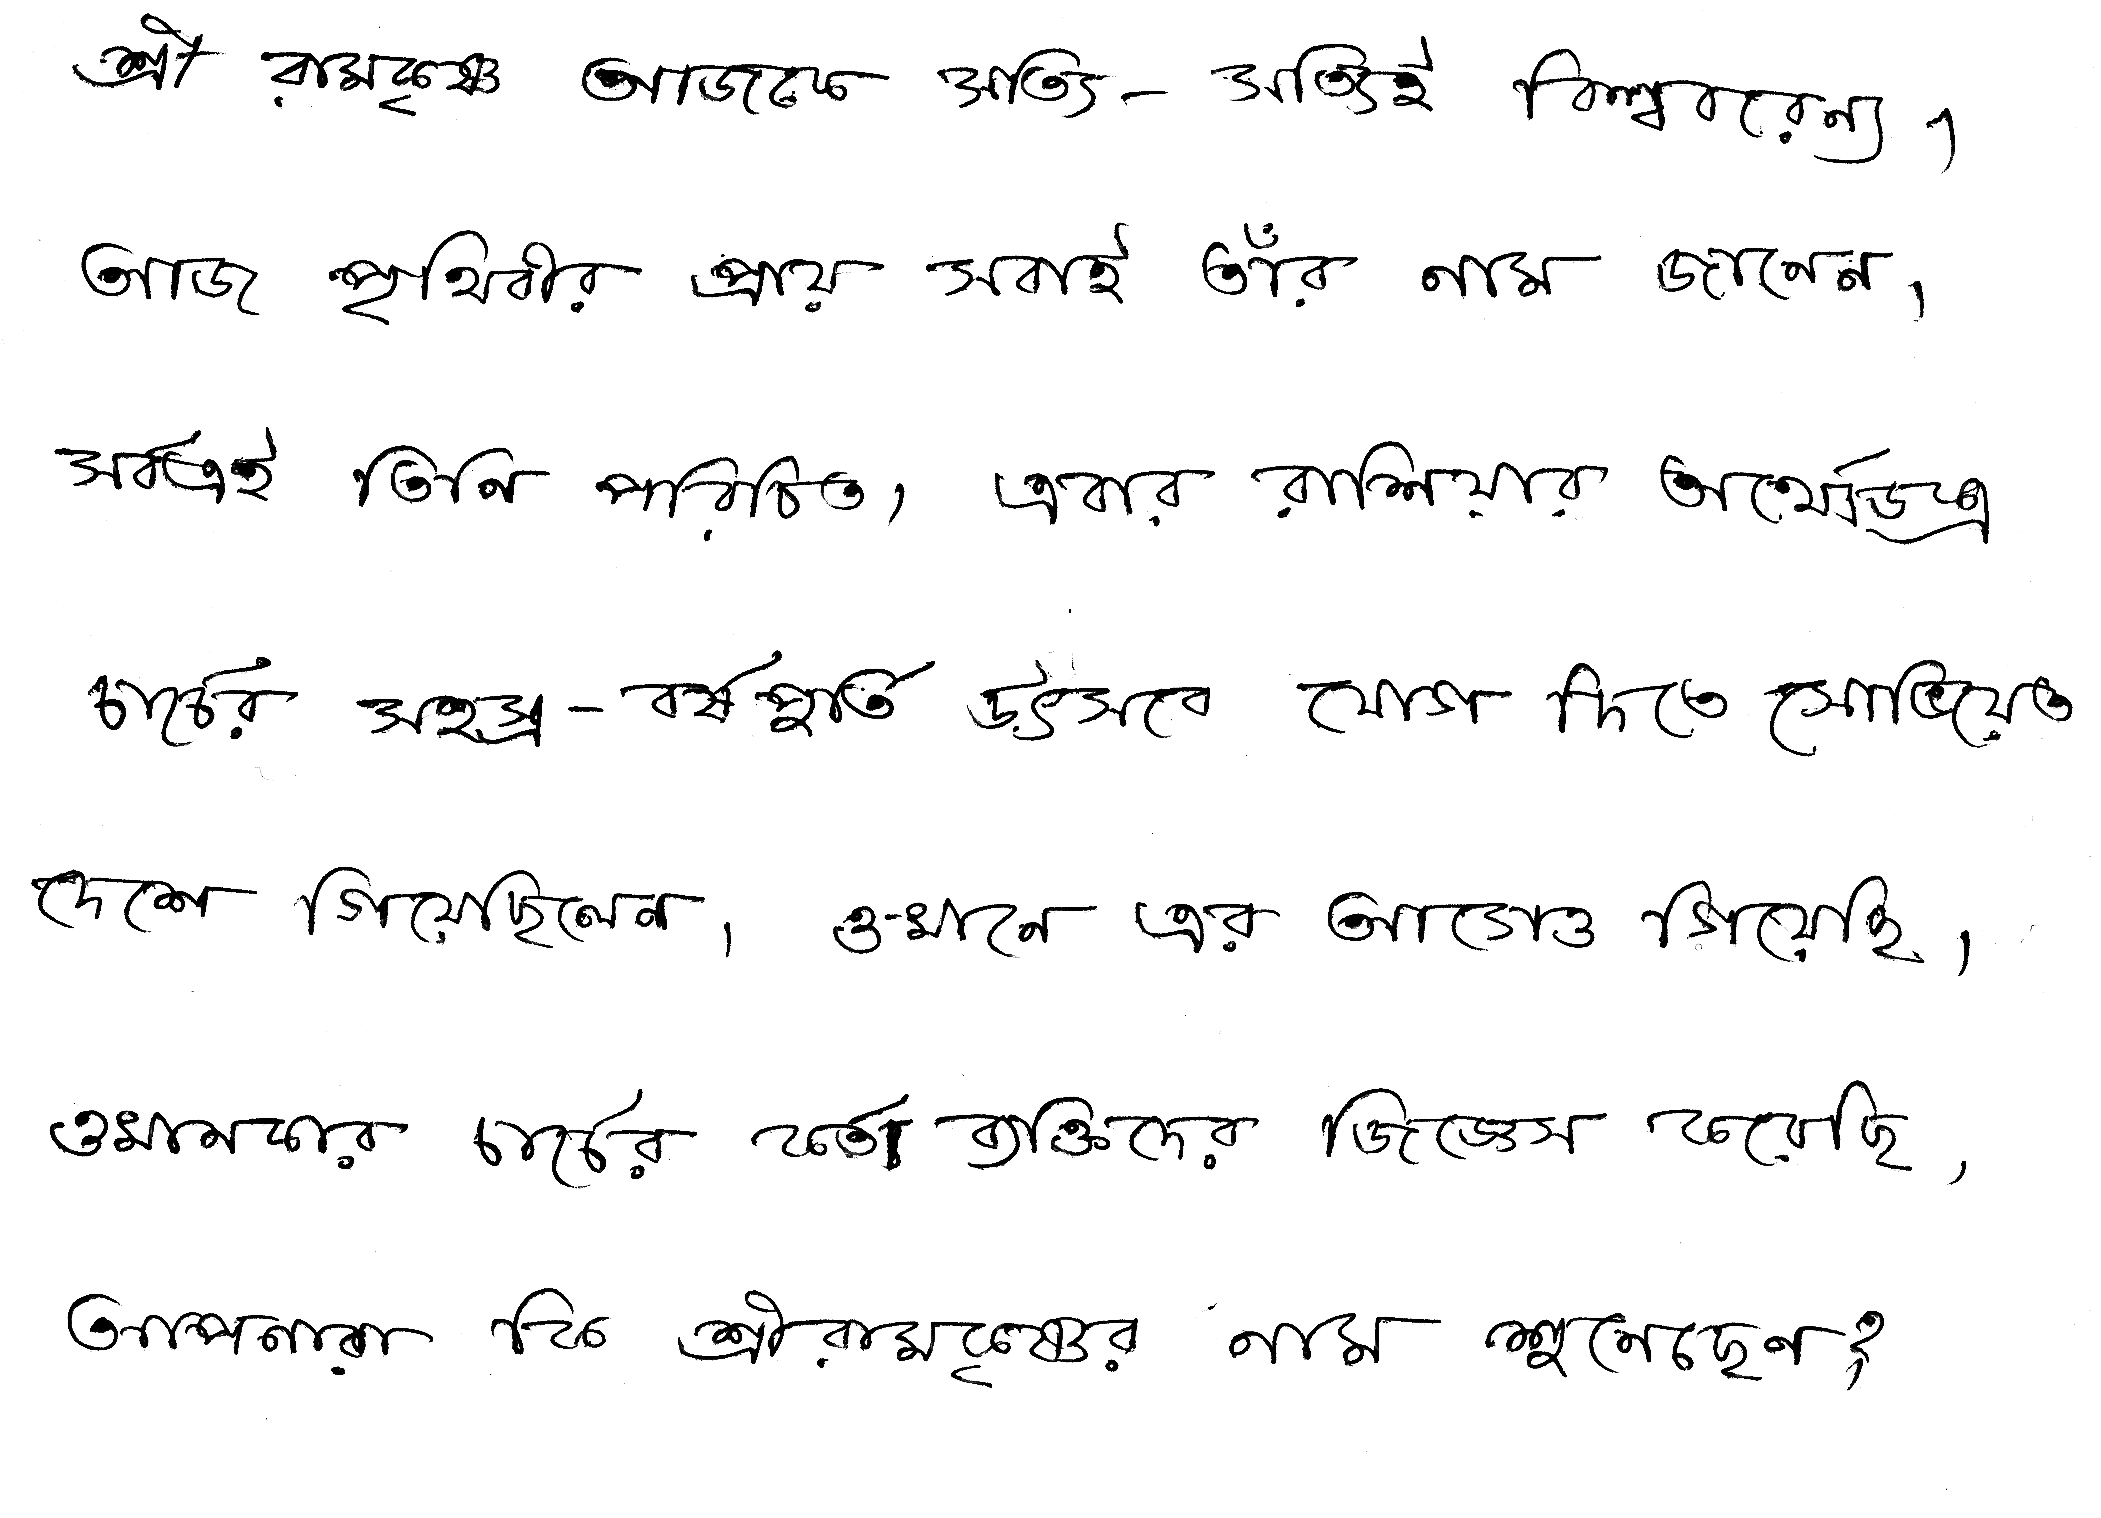 শ্রী রামকৃষ্ণ আজকে সত্যি - সত্যিই বিশ্ববরেন্য।
আজ পৃথিবীর প্রায় সবাই তাঁর নাম জানেন।
সর্বত্রই তিনি পরিচিত। এবার রাশিয়ার
চার্চের সহস্র - বর্ষপুর্তি উৎসবে যোগ দিতে সোভিয়েত
দেশে গিয়েছিলেন। ও-খানে এর আগেও গিয়েছি।
ওখানকার চার্চের কর্তা ব্যক্তিদের জিজ্ঞেস করেছি,
আপনারা কি শ্রীরামকৃষ্ণের নাম শুনেছেন?